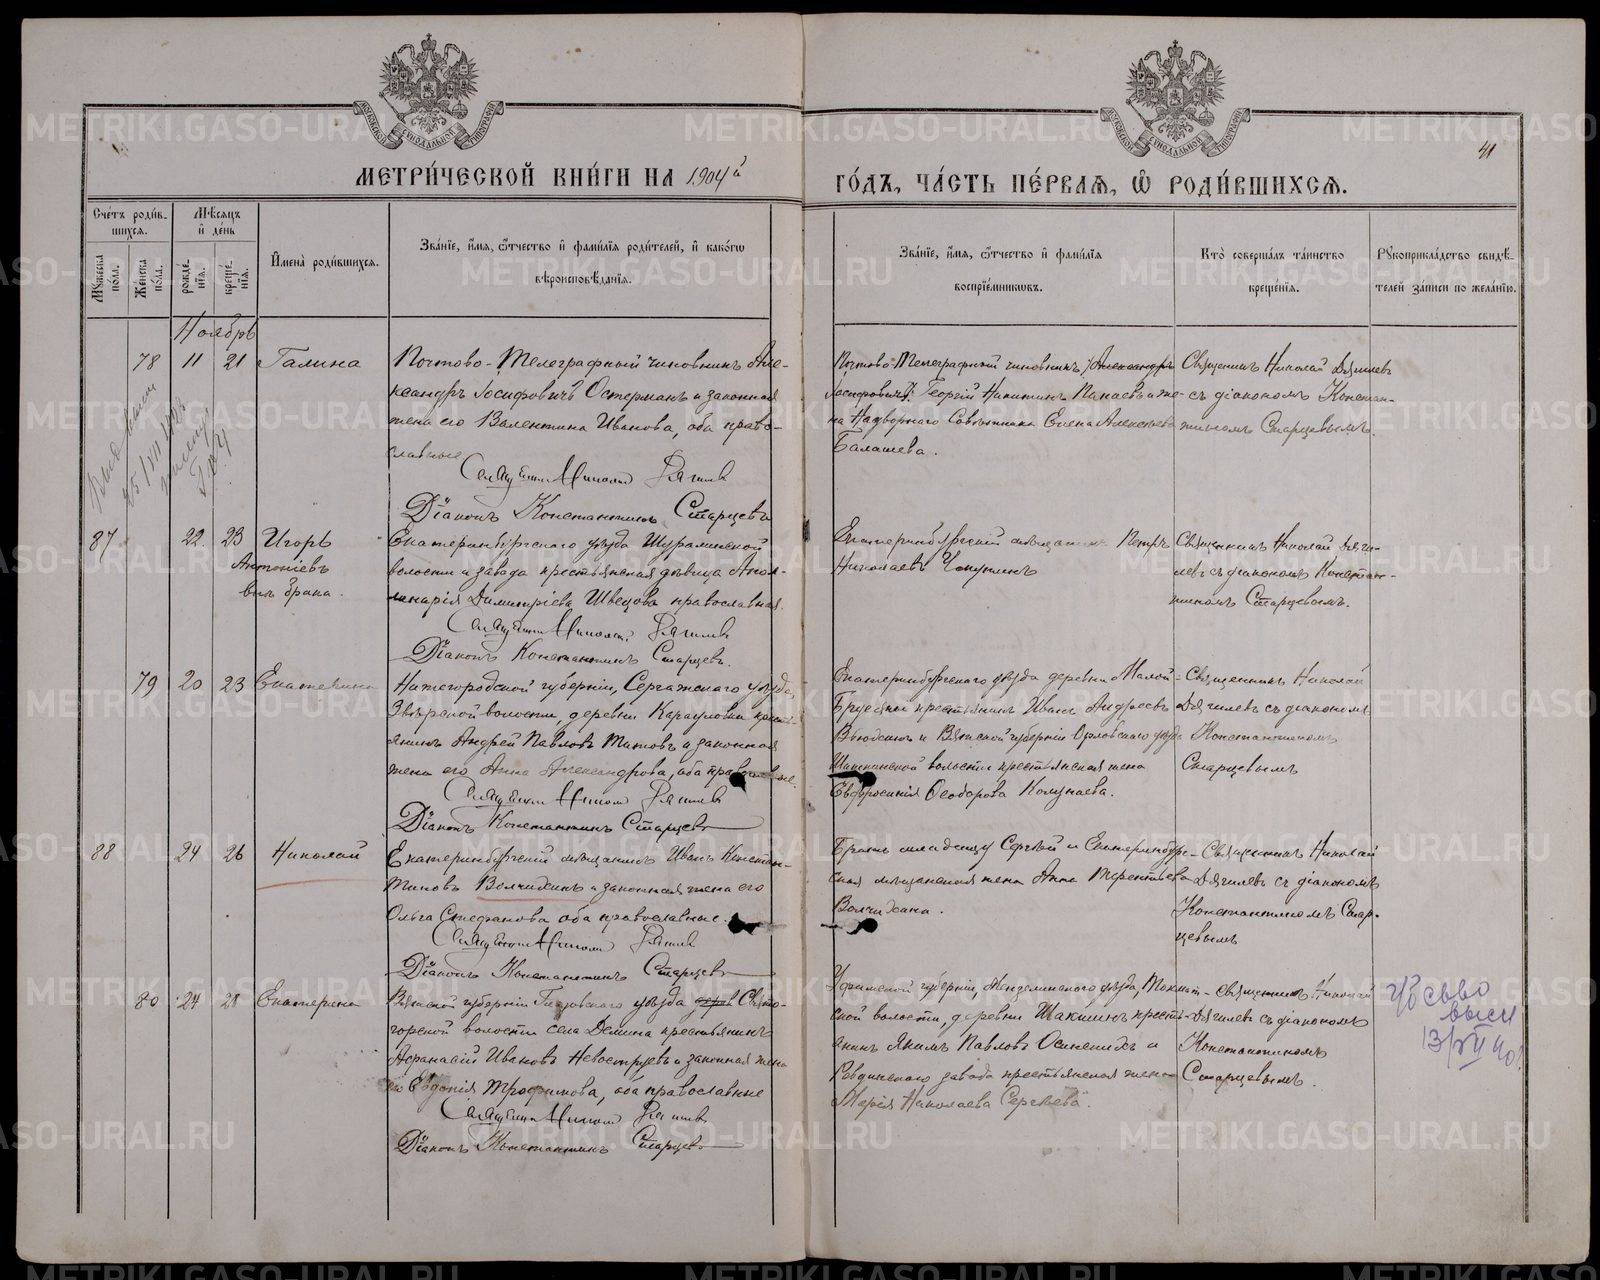 МЕТРИ́ЧЕСКОЙ КНИ́ГИ НА 1904й ГО́ДЪ, ЧА́СТЬ ПЕ́РВАЯ, Ѽ РОДИ́ВШИХСЯ.
41
Сче́тъ роди́в-
шихся.
Мѣсяцъ
и де́нь
Мꙋжеска по́ла.
Же́нска по́ла.
рожде́нїя.
креще́нїя.
Имена̀ роди́вшихся.
Зва́нїе, и́мя, ѻ́тчество и фами́лїя роди́телей, и како́гѡ
вѣроисповѣ́данїя.
Зва́нїе, и́мя, ѻ́тчество и фами́лїя
воспрїе́мникѡвъ.
Кто̀ соверша́лъ та́инство
креще́нїя.
Рꙋкоприкла́дство свидѣ́-
телей за́писи по жела́нїю.
Ноябрь
78 11 21 Галина
Почтово-Телеграфный чиновникъ Але-
ксандръ Іосифовичъ Остерманъ и законная
жена его Валентина Иванова, оба право-
славные
Священникъ Николай Дягилевъ
Діаконъ Константинъ Старцевъ
Почтово-Телеграфный чиновникъ Александръ
Іосифовичъ Георгій Никитинъ Панаевъ и же-
на Надворнаго Совѣтника Елена Алексѣева
Балашева.
Священникъ Николай Дягилевъ
съ діакономъ Констан-
тиномъ Старцевымъ.
87 22 23 Игорь
Антоніевъ
внѣ брака.
Екатеринбургскаго уѣзда Шуралинской
волости и завода крестьянская дѣвица Апол-
линарія Димитріева Швецова православная.
Священникъ Николай Дягилевъ
Діаконъ Константинъ Старцевъ.
Екатеринбургскій мѣщанинъ Петръ
Николаевъ Чопунинъ
Священникъ Николай Дяги-
левъ съ діакономъ Констан-
тиномъ Старцевымъ.
79 20 23 Екатерина
Нижегородской губерніи, Сергачскаго уѣзда,
волости, деревни Карауловки кресть-
янинъ Андрей Павловъ Титовъ и законная
жена его Анна Александрова, оба православные.
Священникъ Николай Дягилевъ
Діаконъ Константинъ Старцевъ
Екатеринбургскаго уѣзда деревни Малой-
Брусяны крестьянинъ Иванъ Андреевъ
и Вятской губерніи Орловскаго уѣзда
волости крестьянская жена
Евфросинія Ѳеодорова
Священникъ Николай
Дягилевъ съ діакономъ
Константиномъ
Старцевымъ
88 24 26 Николай
Екатеринбургскій мѣщанинъ Иванъ Констан-
тиновъ Волчихинъ и законная жена его
Ольга Стефанова оба православные.
Священникъ Николай Дягилевъ
Діаконъ Константинъ Старцевъ
Братъ младенцу Сергѣй и Екатеринбург-
ская мѣщанская жена Анна Терентьева
Волчихина.
Священникъ Николай
Дягилевъ съ діакономъ
Константиномъ Стар-
цевымъ
80 24 28 Екатерина
Вятской губерніи Глазовскаго уѣзда дерев Свято-
горской волости села Демина крестьянинъ
Афанасій Ивановъ Невоструевъ и законная жена
его Евдокія Трофимова, оба православные
Священникъ Николай Дягилевъ
Діаконъ Константинъ Старцевъ
Уфимской губерніи, Мензелинскаго уѣзда,
ской волости, деревни Шакшинъ кресть-
янинъ Якимъ Павловъ и
Ревдинскаго завода крестьянская жена
Марія Николаева Сергѣева.
Священникъ Николай
Дягилевъ съ діакономъ
Константиномъ
Старцевымъ.
METRIKI.GASO-URAL.RU